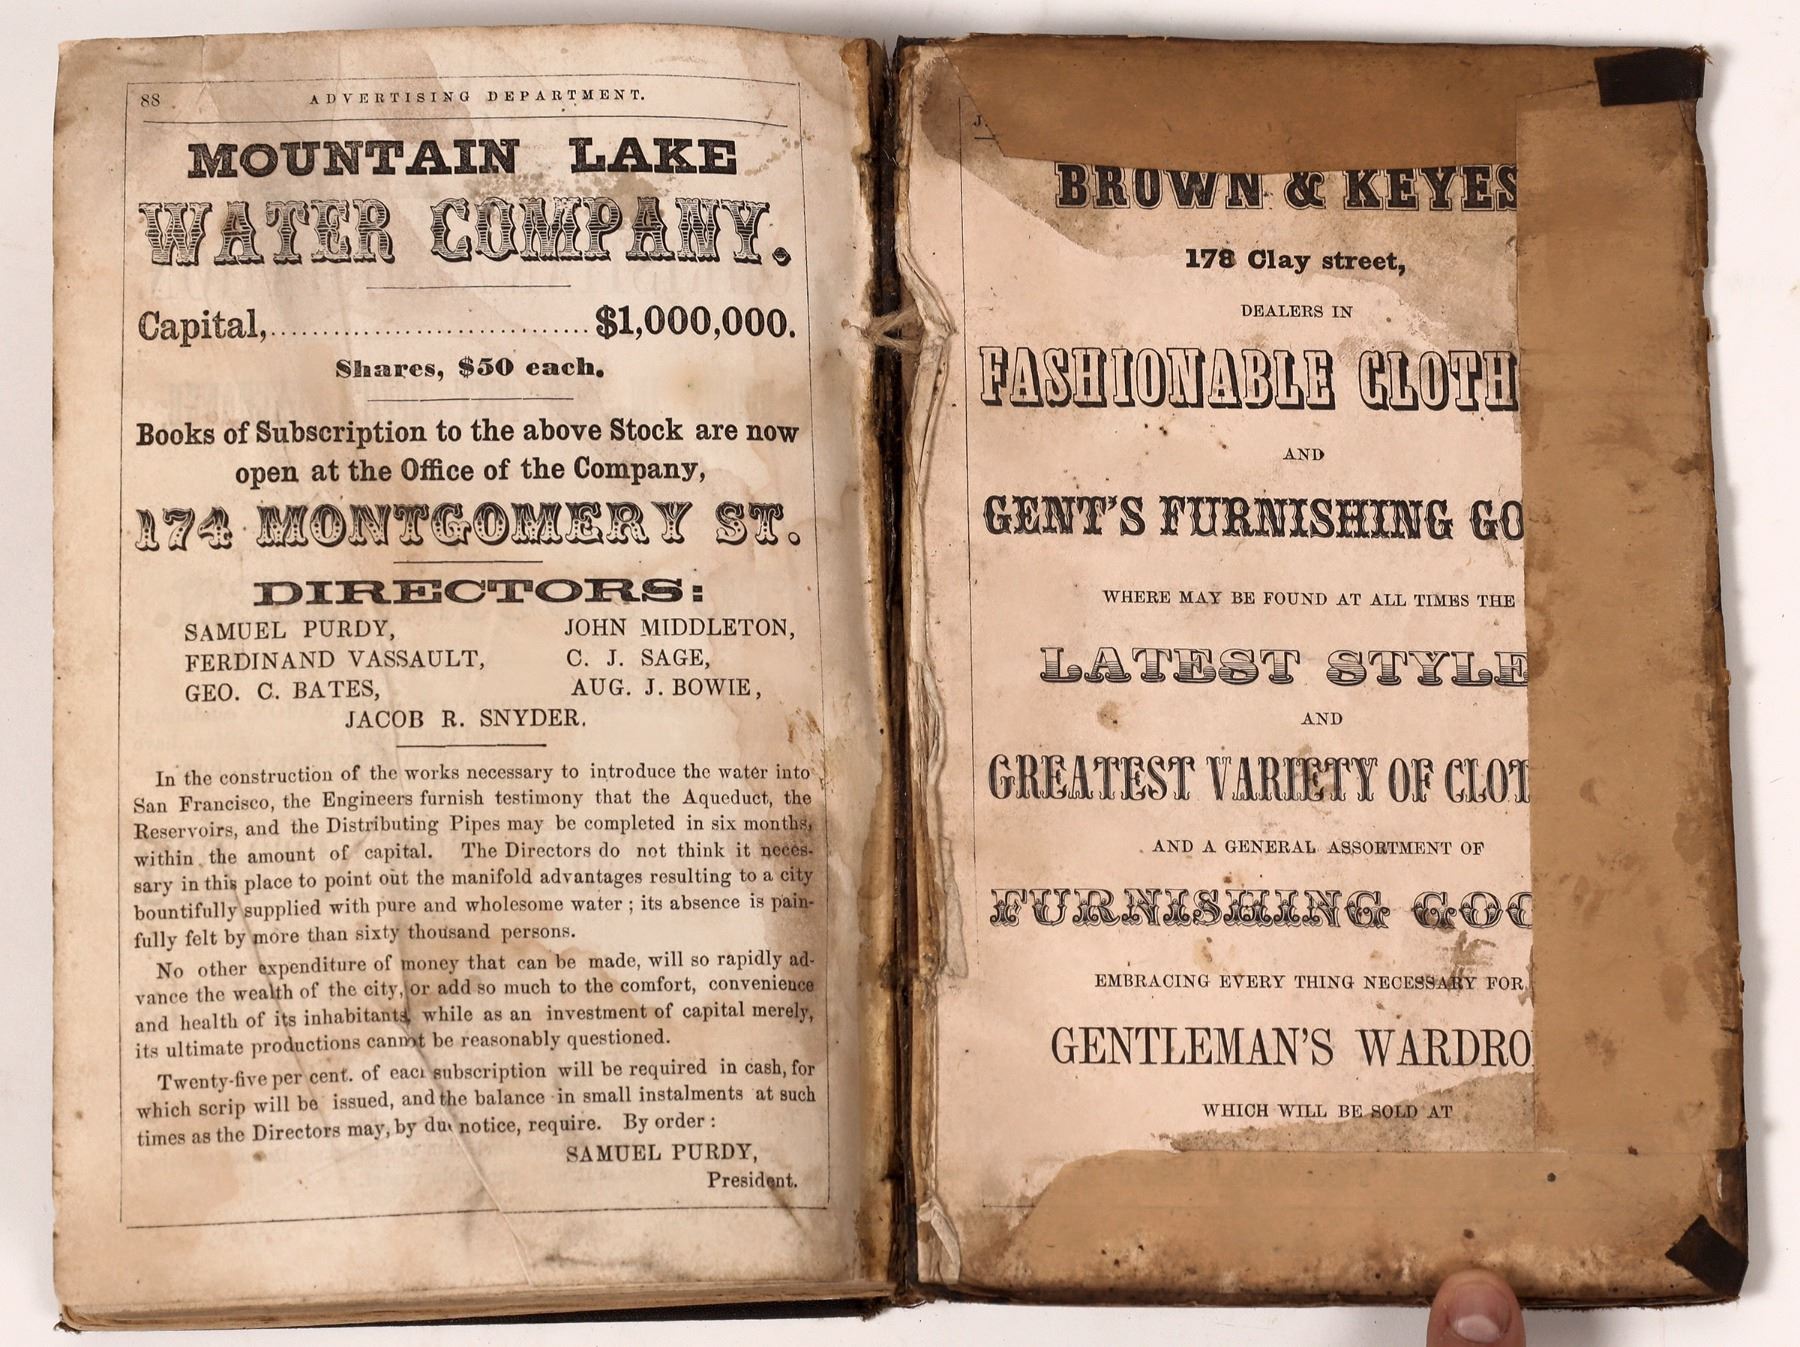 88
ADVERTISING DEPARTMENT.
MOUNTAIN LAKE
WATER COMPANY.
Capital,..............................$1,000,000.
Shares, $50 each.
Books of Subscription to the above Stock are now
open at the Office of the Company,
174 MONTGOMERY ST.
DIRECTORS:
SAMUEL PURDY, JOHN MIDDLETON,
FERDINAND VASSAULT, C. J. SAGE,
GEO. C. BATES, AUG. J. BOWIE,
JACOB R. SNYDER.
In the construction of the works necessary to introduce the water into
San Francisco, the Engineers furnish testimony that the Aqueduct, the
Reservoirs, and the Distributing Pipes may be completed in six months,
within the amount of capital. The Directors do not think it neces-
sary in this place to point out the manifold advantages resulting to a city
bountifully supplied with pure and wholesome water ; its absence is pain-
fully felt by more than sixty thousand persons.
No other expenditure of money that can be made, will so rapidly ad-
vance the wealth of the city, or add so much to the comfort, convenience
and health of its inhabitants, while as an investment of capital merely,
its ultimate productions cannot be reasonably questioned.
Twenty-five per cent. of each subscription will be required in cash, for
which scrip will be issued, and the balance in small instalments at such
times as the Directors may, by due notice, require. By order :
SAMUEL PURDY,
President.
J.
BROWN & KEYES
178 Clay street,
DEALERS IN
FASHIONABLE CLOTH
AND
GENT'S FURNISHING GO
WHERE MAY BE FOUND AT ALL TIMES THE
LATEST STYLE
AND
GREATEST VARIETY OF CLOT
AND A GENERAL ASSORTMENT OF
FURNISHING GOO
EMBRACING EVERY THING NECESSARY FOR
GENTLEMAN'S WARDRO
WHICH WILL BE SOLD AT